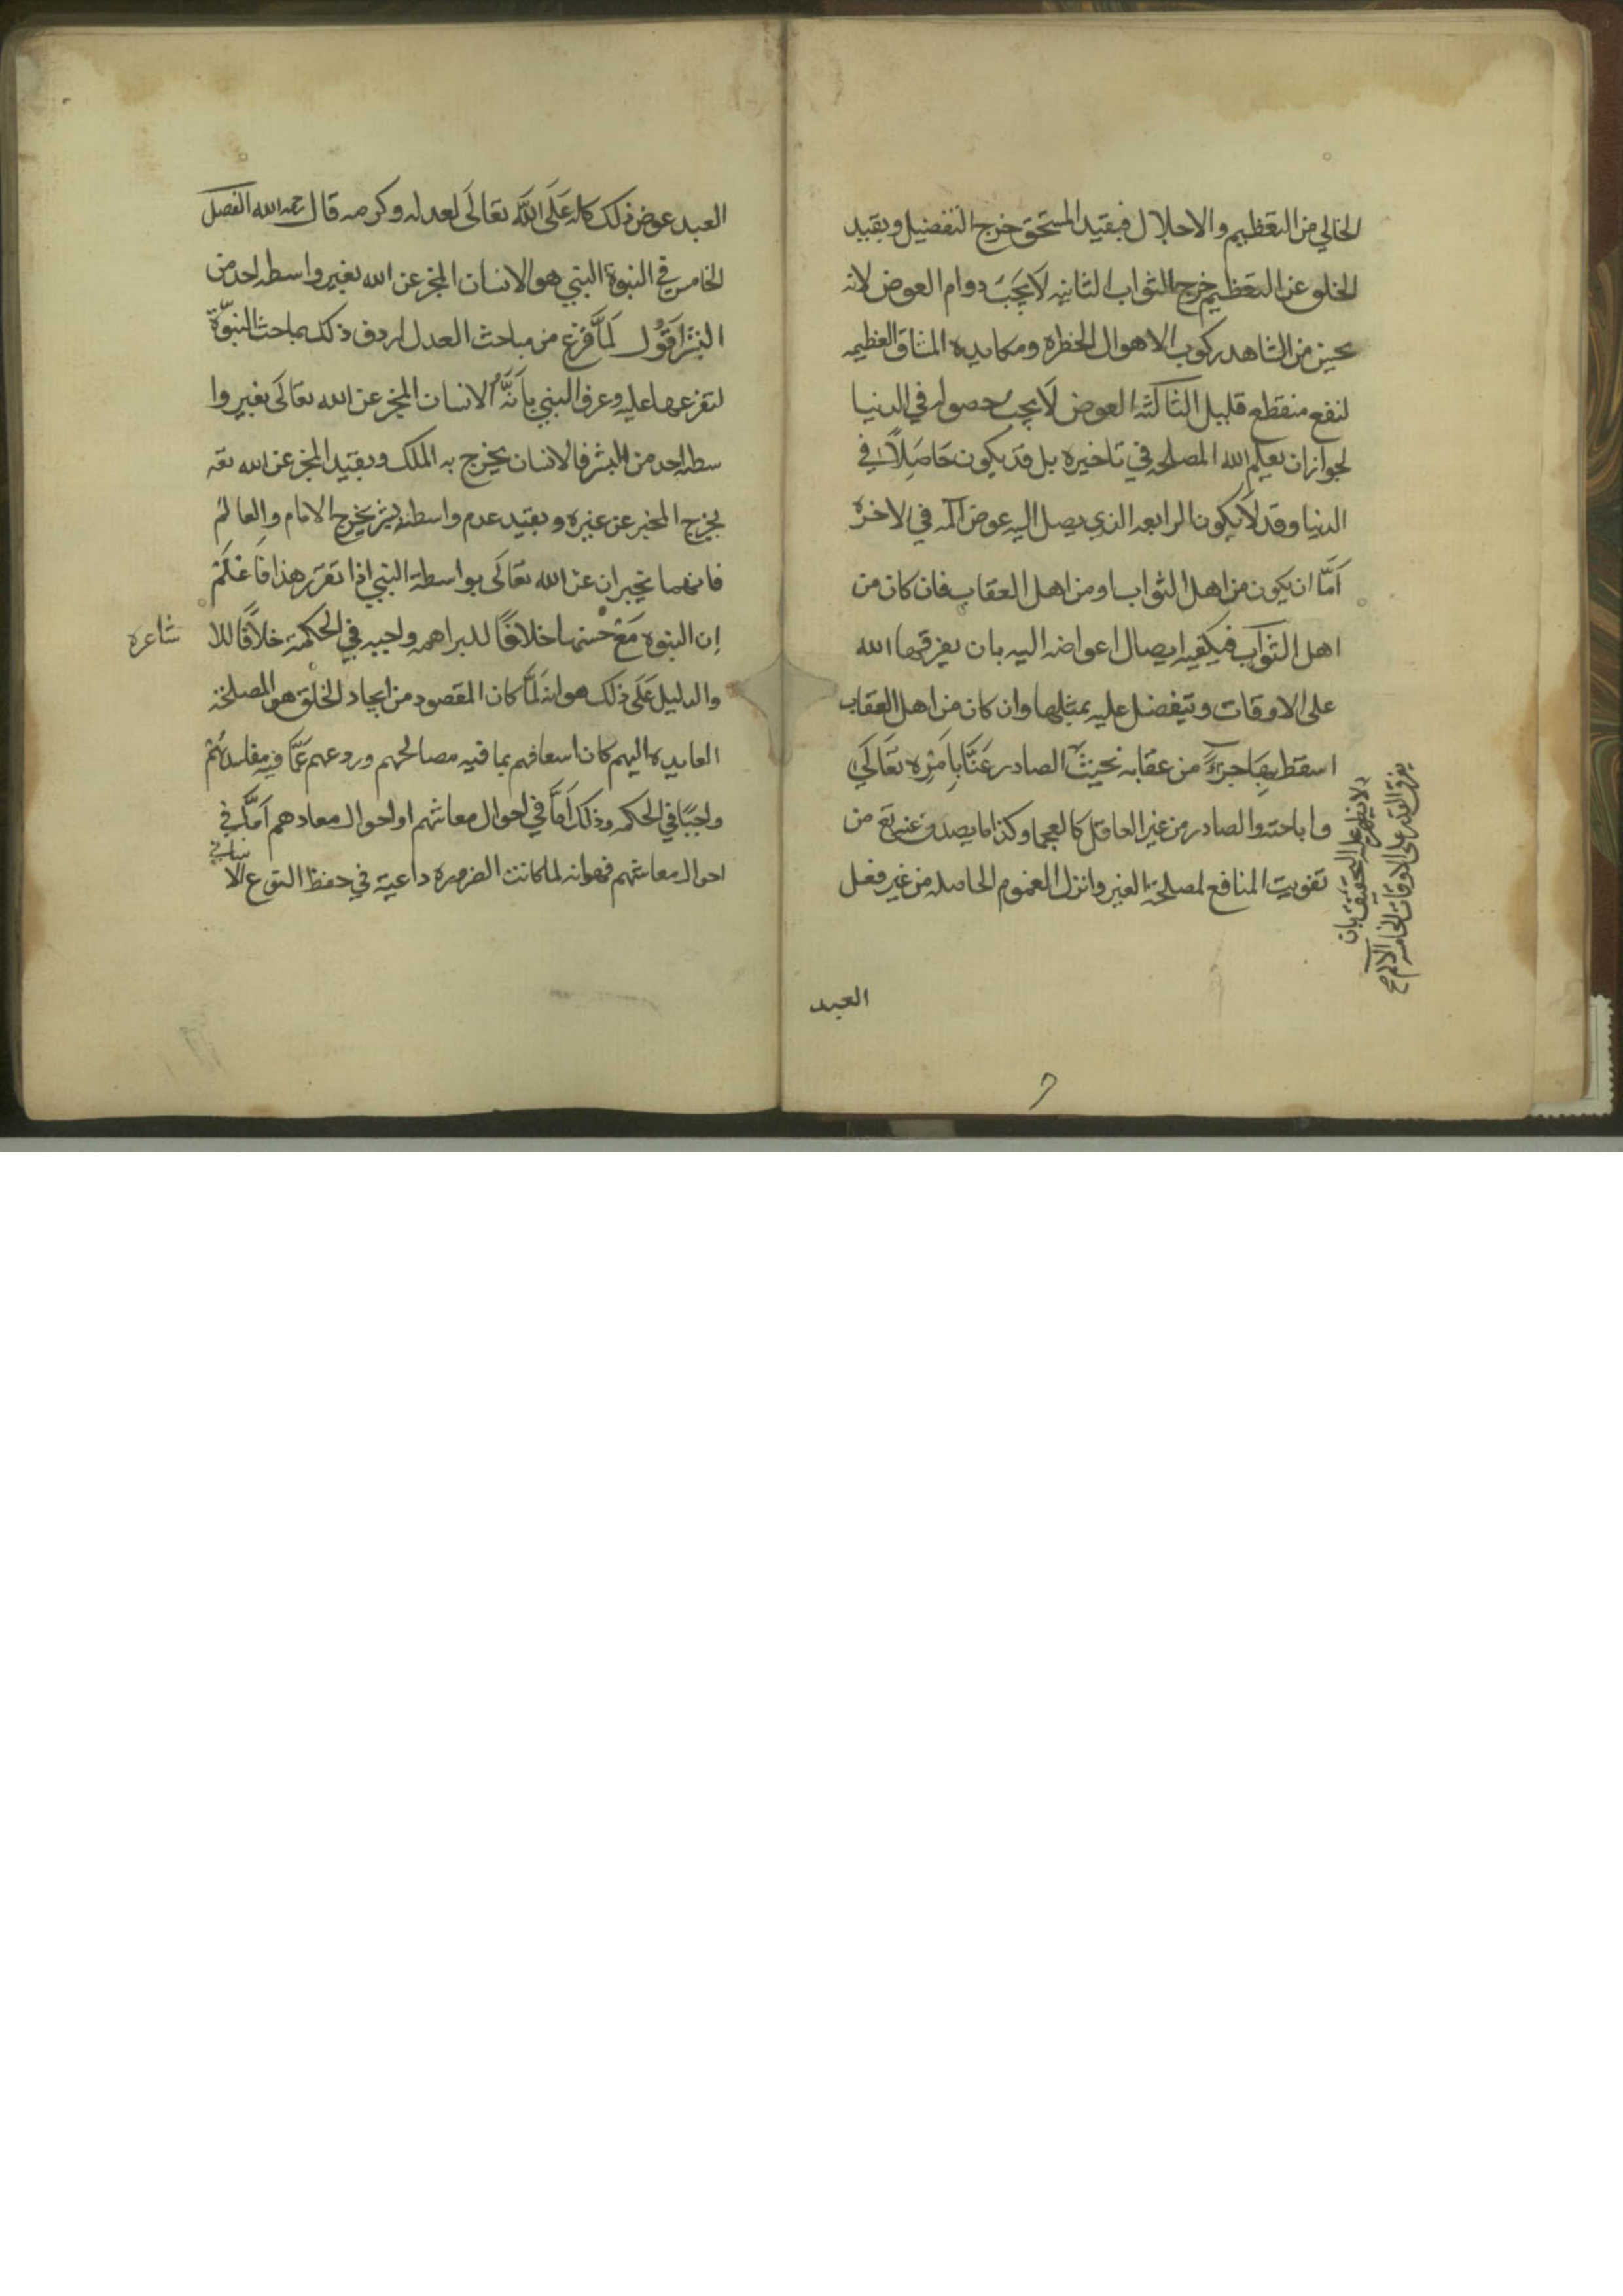 الخالي من التعظيم والاجلال فبقيد المستحق خرج التفضيل وبقيد
الخلو عن التعظيم خرج الثواب الثانيه لا يجب دوام العوض لانه
يحسن من الشاهد ركوب الاهوال الخطره ومكابده المشاق العظيمه
لنفع منقطع قليل الثالثه العوض لا يجب حصوله في الدنيا
لجواز ان يعلم الله المصلحه في تاخيره بل قد يكون حاصلا في
الدنيا وقد لا يكون الرابعه الذي يصل اليه عوض المه في الاخره
اما ان يكون من اهل الثواب او من اهل العقاب فان كان من
اهل الثواب فيكفيه ايصال اعواضه اليه بان يفرقها الله
على الاوقات ويتفضل عليه بمثلها وان كان من اهل العقاب
اسقط بها جزءً من عقابه بحيث الصادر عنا بامره تعالى
واباحته والصادر من غير العاقل كالعجما وكذا ما يصدر عنه تع من
تفويت المنافع لمصلحة الغير وانزال الغموم الحاصله من غير فعل
لا يظهر له التخفيف بان
يفرق القدر على الاوقات الخامسه الالم صح
العبد
العبد عوض ذلك كله عَلَى اللَّه تعالى لعدله وكرمه قال رحمه الله الفصل
الخامس في النبوة النبي هو الانسان المخبر عن الله بغير واسطه احد من
البشر اقول لَمَّا فرغ من مباحث العدل اردف ذلك بمباحث النبوّة
لتفرعها عليه وعرف النبي بأنَّه الانسان المخبر عن الله تعالى بغير وا
سطه احد من البشر فالانسان يخرج به الملك وبقيد المخبر عن الله تعه
يخرج المخبر عن غيره وبقيد عدم واسطة بشر يخرج الامام والعالم
فانهما يخبران عن الله تعالى بواسطة النبي اذا تقرر هذا فاعلم
ان النبوه مع حسنها خلافًا للبراهمه واجبه في الحكمة خلافًا للا
شاعره
والدليل عَلَى ذلك هو انه لَمَّا كان المقصود من ايجاد الخلق هو المصلحة
العايده اليهم كان اسعافهم بما فيه مصالحهم وردعهم عَمَّا فيه مفاسدهم
واجبًا في الحكمه وذلك اَمَّا في احوال معاشهم او احوال معادهم اَمَّا في
احوال معاشهم فهو انه لما كانت الضروره داعية في حفظ النوع الا
نساني